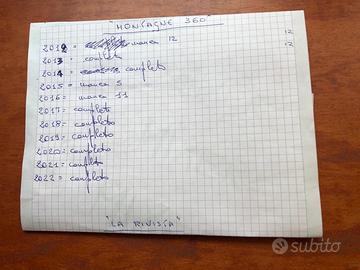 "MONTAGNE 360"
2012 = manca 12
2013 = completo
2014 = completo
2015 = manca 5
2016 = manca 11
2017 = completo
2018 = completo
2019 = completo
2020 = completo
2021 = completo
2022 = completo
12
12
"LA RIVISTA"
subito